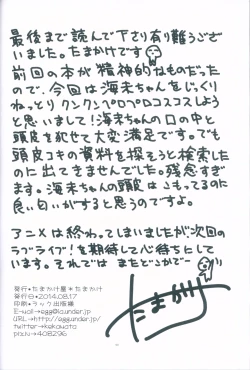 最後まで読んで下さり有り難うござ
いました。たまかけです
前回の本が精神的なものだった
ので、今回は海未ちゃんをじっくり
ねっとりクンクンペロペロコスコスしよう
と思いまして!海未ちゃんの口の中と
頭皮を犯せて大変満足です。でも
頭皮コキの資料を探そうと検索した
のに出てきませんでした。残念すぎ
ます。海未ちゃんの頭皮はこもってるのに
良い匂いがすると思うのですよ。
アニメは終わってしまいましたが次回の
ラブライブ!を期待して心待ちにして
います。それでは またどこかで
発行•たまかけ屋*たまかけ
発行日•2014.08.17
印刷•ラック出版様
E-mail→egg@la.under.jp
URL→http://egg.under.jp/
twitter→kekewata
pixiv→408296
たまかけ